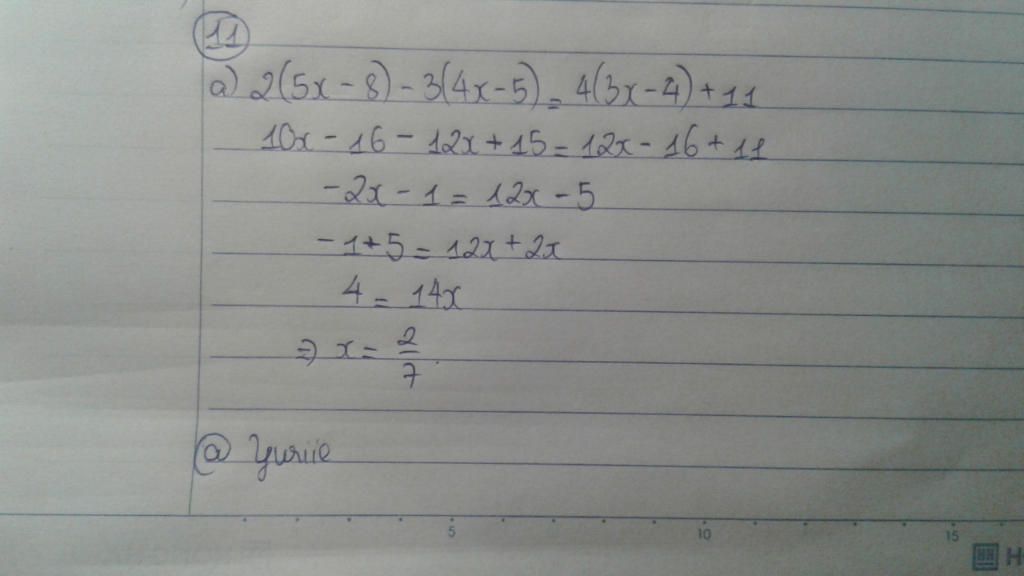 11
a) 2(5x - 8) - 3(4x - 5) = 4(3x - 4) + 11
10x - 16 - 12x + 15 = 12x - 16 + 11
-2x - 1 = 12x - 5
-1 + 5 = 12x + 2x
4 = 14x
=> x = 2/7.
@ Yuriie
5 10 15
H